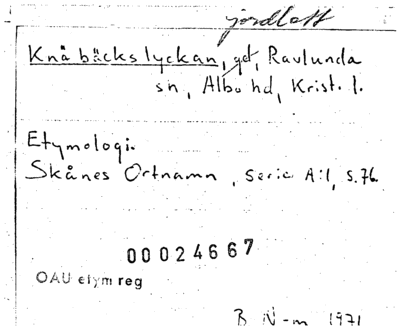 jordlott
Knåbäckslyckan, get, Ravlunda
sn, Albo hd, Krist. l.
Etymologi.
Skånes Ortnamn, Serie A:1, s. 76.
00024667
OAU etym reg
B N-m 1971